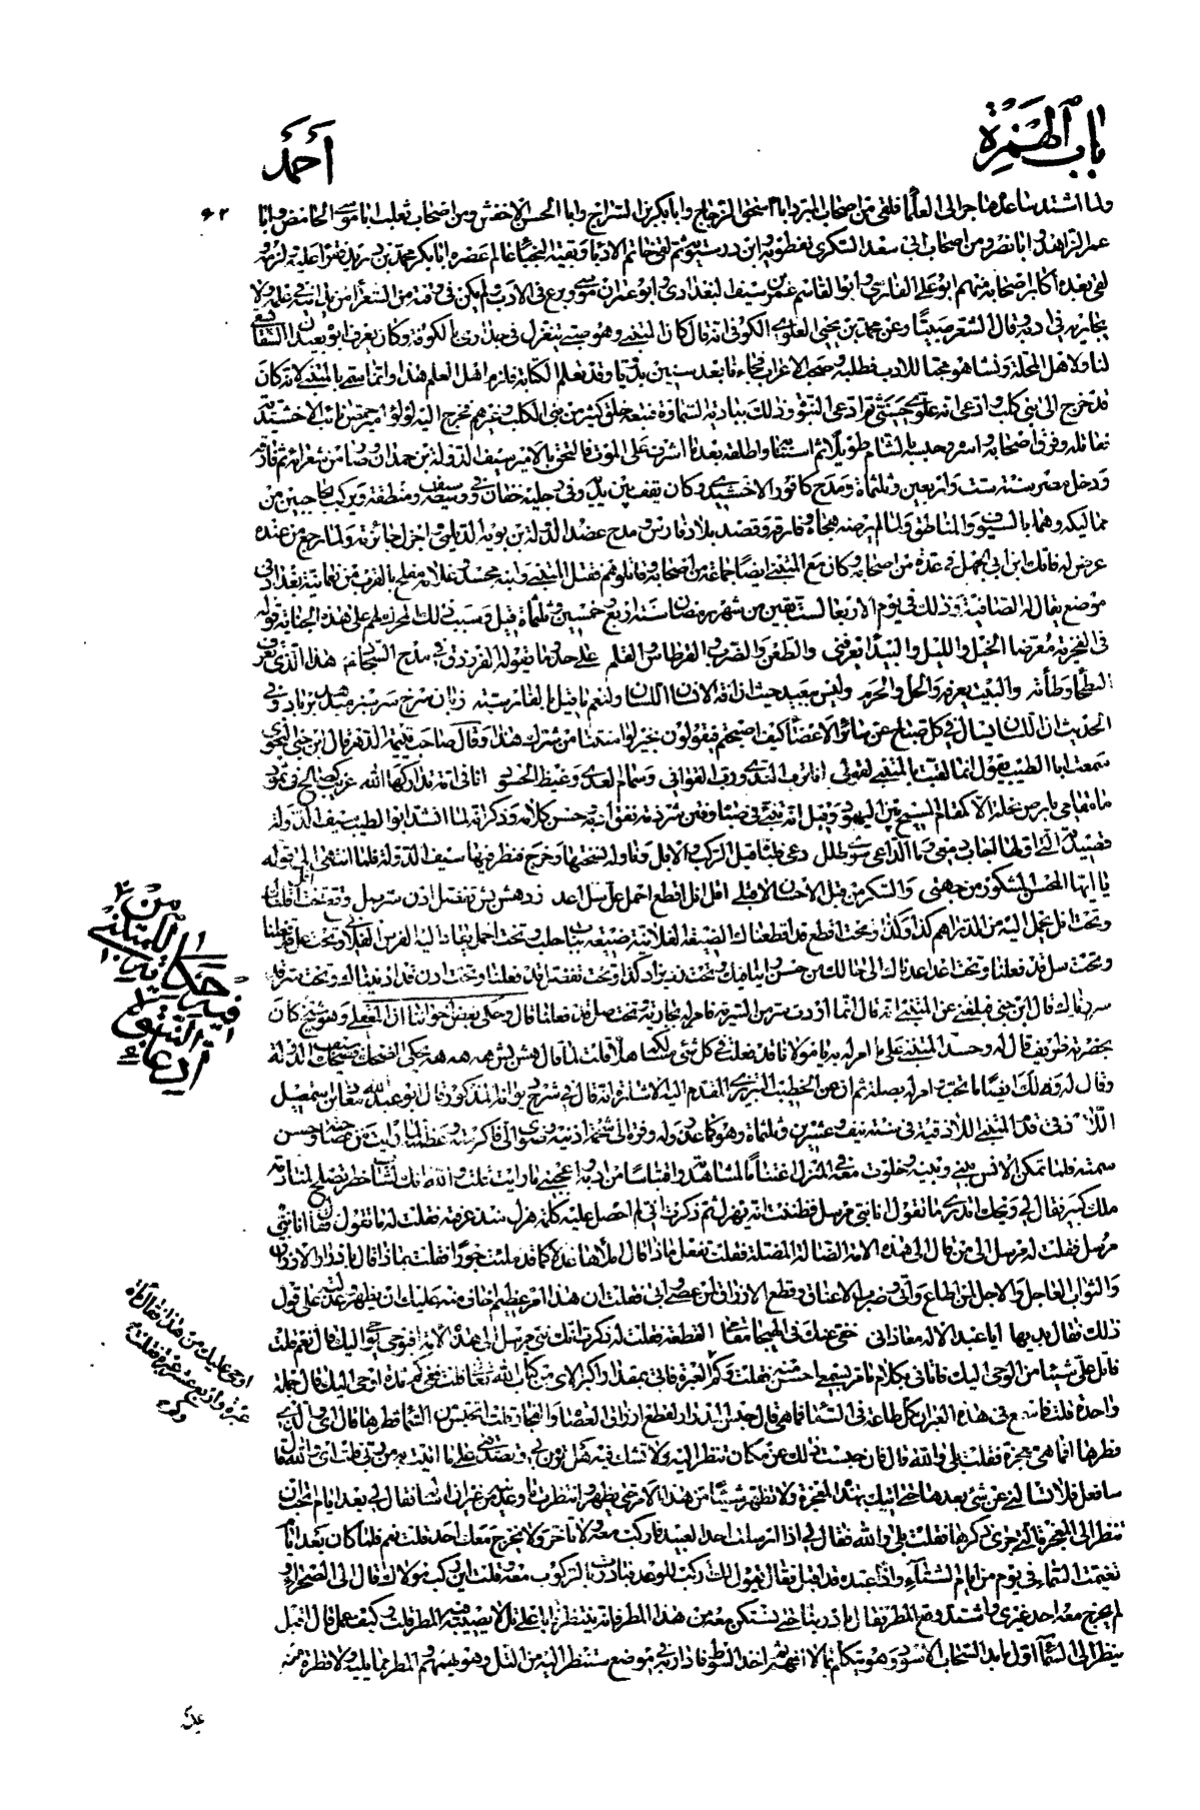 باب الهمزة
أحمد
٦٢
ولما اشتد ساعده هاجر الى العلماء فلقي من اصحاب المبرد ابا اسحق الزجاج وابا بكر بن السراج وابا الحسن الاخفش ومن اصحاب ثعلب ابا موسى الحامض وابا
عمر الزاهد وابا نصر ومن اصحاب ابي سعد السكري نفطويه وابن درستويه ثم لقي خاتم الادباء وبقية النجباء عالم عصره ابا بكر محمد بن دريد فقرأ عليه ولزمه
لقي بعده اكابر اصحابه منهم ابو علي الفارسي وابو القاسم عمر بن سيف البغدادي وابو عمران موسى وبرع في الادب ولم يكن في وقته من الشعراء من يدانيه في علمه ولا
يجاريه في ادبه وقال الشعر صبيا وعن محمد بن يحيى العلوي الكوفي انه قال كان المتنبي وهو صبي ينزل في جيراني بالكوفة وكان يعرف ابوه بعبدان السقا يسقي
لنا ولاهل المحلة ونشا هو محبا للادب فطلبه وصحب الاعراب فجاءنا بعد سنين بدويا وقد تعلم الكتابة فلزم اهل العلم هذا وانما سمي بالمتنبي لانه كان
قد خرج الى بني كلب وادعى انه علوي حسني ثم ادعى النبوة وذلك ببادية السماوة فتبعه خلق كثير من بني الكلب وغيرهم فخرج اليه لؤلؤ امير حمص نائب الاخشيدية
فقاتله وفرق اصحابه واسره وحبسه بالشام طويلا ثم استتابه واطلقه بعد ما اشرف على الموت فالتحق بالامير سيف الدولة بن حمدان وصار من شعرائه ثم فارقه
ودخل مصر سنة ست واربعين وثلثمائة ومدح كافور الاخشيدي وكان يقف بين يديه وفي رجليه خفان وفي وسطه سيف ومنطقة ويركب بحاجبين من
مماليكه وهما بالسيوف والمناطق ولما لم يرضه هجاه وفارقه وقصد بلاد فارس ومدح عضد الدولة بن بويه الديلمي واجزل جائزته ولما رجع من عنده
عرض له فاتك ابن ابي الجهل في عدة من اصحابه وكان مع المتنبي ايضا جماعة من اصحابه فقاتلوهم فقتل المتنبي وابنه محسد وغلامه مفلح بالقرب من نعمانية بغداد في
موضع يقال له الصافية وذلك في يوم الاربعا لست بقين من شهر رمضان سنة اربع وخمسين وثلثمائة قيل وسبب ذلك المحرك لهم على هذه الجناية قوله
في الفخرية معرضا الخيل والليل والبيداء تعرفني والطعن والضرب والقرطاس والقلم على حذو ما يقوله الفرزدق في مدح السجاد هذا الذي تعرف
البطحاء وطأته والبيت يعرفه والحل والحرم وليس ببعيد حيث ان آفة الانسان اللسان ولنعم ما قيل بالفارسية زبان سرخ سر سبز ميدهد بر باد وفي
الحديث ان اللسان يسال في كل صباح عن سائر الاعضاء كيف اصبحتم فيقولون بخير لو امنتنا من شرك هذا وقال صاحب يتيمة الدهر قال ابن جني النحوي
سمعت ابا الطيب يقول انما لقبت بالمتنبي لقولي انا ترب الندى ورب القوافي وسمام العدى وغيظ الحسود انا في امة تداركها الله غريب كصالح في ثمود
ما مقامي بارض نخلة الا كمقام المسيح بين اليهود وقيل انه تنبى في صباه وفتن شرذمة بقوة ادبه وحسن كلامه وذكر انه لما انشد ابو الطيب سيف الدولة
قصيدته التي اولها اجاب دمعي وما الداعي سوى طلل دعى فلباه قبل الركب والابل وناوله نسختها وخرج فنظر فيها سيف الدولة فلما انتهى الى قوله
يا ايها المحسن المشكور من جهتي والشكر من قبل الاحسان لا قبلي اقل انل اقطع احمل عل سل اعد زد هش بش تفضل ادن سر صل وقع تحت اقل اقلناك
وتحت انل يحمل اليه من الدراهم كذا وكذا وتحت اقطع قد اقطعناك الضيعة الفلانية ضيعة بباب حلب وتحت احمل يقاد اليه الفرس الفلاني وتحت عل قد فعلنا
وتحت سل قد فعلنا وتحت اعد اعدناك الى حالك من حسن رأينا فيك وتحت زد يزاد كذا وتحت تفضل قد فعلنا وتحت ادن قد ادنيناك وتحت سر قد
سررناك قال ابن جني فبلغني عن المتنبي انه قال انما اردت سر من السرية فامر له بجارية وتحت صل قد فعلنا قال وحكى بعض اخواننا ان المعقلي وهو شيخ كان
بحضرته ظريف قال له وحسد المتنبي على ما امر له به يا مولانا قد فعلت في كل شيء سألكه هلا قلت لما قال هش بش هه هه هه يحكي الضحك فضحك سيف الدولة
وقال له ولك ايضا ما تحب وامر له بصلة ثم ان عن الخطيب التبريزي المقدم اليه الاشارة انه قال في شرح ديوانه المذكور قال ابو عبد الله معاذ بن اسمعيل
اللاذقي قدم المتنبي اللاذقية في سنة نيف وعشرين وثلثمائة وهو كما عذر وله وفرة الى شحمة اذنيه وضوى الي فاكرمته وعظمته لما رأيت من فصاحته وحسن
سمته فلما تمكن الانس بيني وبينه وخلوت معه في المنزل اغتناما لمشاهدته واقتباسا من ادبه واعجبني ما رايت قلت والله انك لشاب خطير تصلح لمنادمة
ملك كبير فقال لي ويحك اتدري ما تقول انا نبي مرسل فظننت انه يهزل ثم ذكرت اني لم احصل عليه كلمة هزل منذ عرفته فقلت له ما تقول فقال انا نبي
مرسل فقلت له مرسل الى من قال الى هذه الامة الضالة المضلة فقلت تفعل ماذا قال املأها عدلا كما قد ملئت جورا فقلت بماذا قال بادرار الارزاق
والثواب العاجل والاجل لمن اطاع واتى وضرب الاعناق وقطع الارزاق لمن عصى وابى فقلت ان هذا امر عظيم اخاف منه عليك ان يظهر وعذلته على قول
ذلك فقال بديها ايا عبد الاله معاذ اني خفي عنك في الهيجا مقامي القطعة فقلت له ذكرت انك نبي مرسل الى هذه الامة افيوحى اليك قال نعم قلت
فاتل علي شيئا من الوحي اليك فاتاني بكلام ما مر بسمعي احسن منه فقلت وكم
واحدة قلت فاسمع في هذه العبر ان لك طاعة في السماء فما هي قال احبس المدرار لقطع ارزاق العصاة والفجار قلت اتحبس من السماء قطرها قال اي والذي
فطرها افما هي معجزة فقلت بلى والله قال فان حبست ذلك عن مكان تنظر اليه ولا تشك فيه هل تؤمن بي وتصدقني على ما اتيت به من ربي قلت اي والله قال
سافعل فلا تسالني عن شيء بعدها حتى آتيك بهذه المعجزة ولا تظهر شيئا من هذا الامر حتى يظهر وانتظر ما وعدته من غير ان تسأله فقال لي بعد ايام اتحب ان
تنظر الى المعجزة التي جرى ذكرها فقلت بلى والله فقال لي اذا ارسلت احد العبيد فاركب معه ولا تاخر ولا يخرج معك احد قلت نعم فلما كان بعد ايام
تغيمت السماء في يوم من ايام الشتاء واذا عبده قد اقبل فقال يقول لك اركب للوعد فبادرت بالركوب معه وقلت اين ركب مولاك قال الى الصحراء و
لم يخرج معه احد غيري واشتد وقع المطر فقال بادر بنا حتى نستكن معه من هذا المطر فانه ينتظرنا باعلى تل لا يصيبه فيه المطر قلت وكيف عمل قال اقبل
ينظر الى السماء اول ما بدا السحاب الاسود وهو يتكلم بما لا افهم ثم اخذ السوط فادار به في موضع ستنظر اليه من التل وهو يهمهم والمطر مما يليه ولا قطرة منه
من للمتنبي
حكاية غريبة
فيه
ادعاء النبوة
اوحى عليك من هذا فقال مائة
عبرة واربع عشرة عبرة فقلت
وكم
عليه